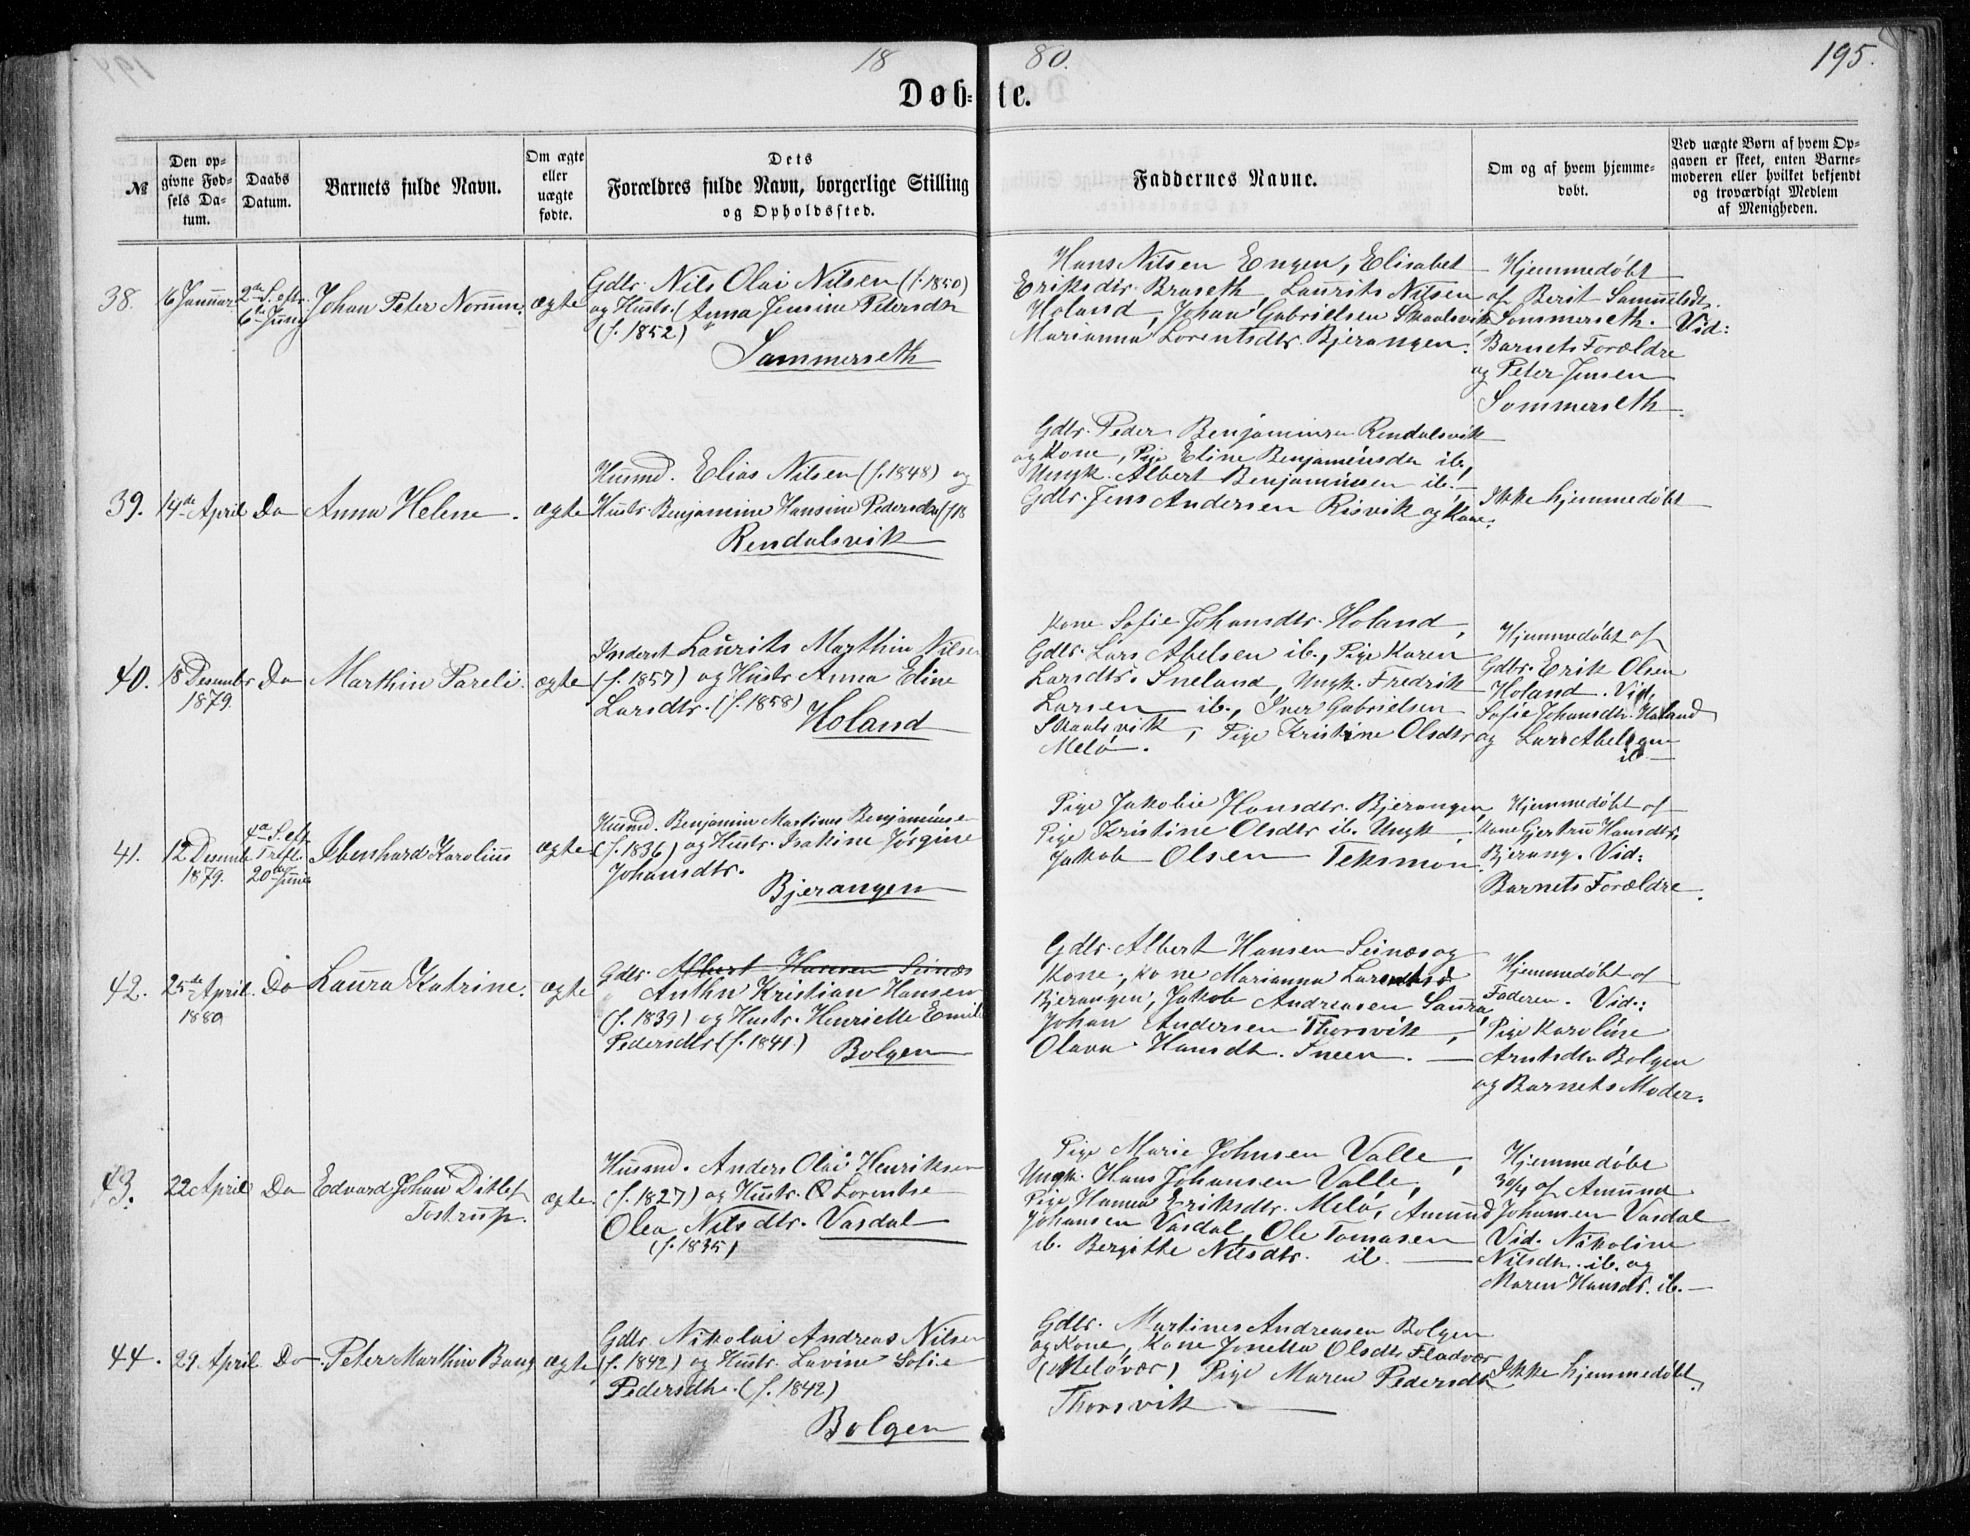 18 80. 195.
Døb-te.
№
Den op-
givne Fød-
sels Da-
tum.
Daabs
Datum.
Barnets fulde Navn.
Om ægte
eller
uægte
fødte.
Dets
Forældres fulde Navn, borgerlige Stilling
og Opholdssted.
Faddernes Navne.
Om og af hvem hjemme-
døbt.
Ved uægte Børn af hvem Op-
gaven er skeet, enten Barne-
moderen eller hvilket bekjendt
og troværdigt Medlem
af Menigheden.
38.
6 Januar
2den S. eft.
6te Juni
Johan Peter Normm.
ægte
Gdbr. Nils Olai Nilsen (f. 1850)
og Hustr. (Anna Jensine Petersdtr
(f. 1852)
Sammerseth
Hans Nilsen Engen, Elisabet
Eriksdtr. Braseth, Laurits Nilsen
Holand, Johan Gabrielsen Skaalsvik
Marianna Lorentsdtr. Bjerangen.
Hjemmedøbt
af Berit Samuelsdtr.
Sommerseth. Vid:
Barnets Forældre
og Peter Jensen
Sommerseth.
39.
14de April
Do
Anna Helene.
ægte
Husmd. Elias Nilsen (f. 1848) og
Hustr. Benjamine Hansine Pedersdtr (f 18
Rendalsvik
Gdbr. Peder Benjaminsen Rendalsvik
og Kone, Pige Eline Benjaminsdtr ib.,
Ungk. Albert Benjaminsen ib.
Gdbr. Jens Andersen Risvik og Kone.
Ikke hjemmedøbt
40.
18 Desember
1879
Do
Marthin Pareli.
ægte
Inderst Laurits Marthin Nilsen
(f. 1857) og Hustr Anna Eline
Larsdtr. (f. 1858)
Holand
Kone Sofie Johansdtr. Holand,
Gdbr. Lars Abelsen ib., Pige Karen
Larsdtr. Eneland, Ungk. Fredrik
Larsen ib., Iver Gabrielsen
Skaalsvik, Pige Kristine Olsdtr
Melø.
Hjemmedøbt af
Gdbr. Erik Olsen
Holand. Vid.
Sofie Johansdtr. Holand
og Lars Abelsen
ib
41.
12 Desemb
1879.
4de S. eft.
Trefl.
20de Juni
Ibenhard Karolius
ægte
Husmd. Benjamin Martinus Benjaminse
(f. 1836) og Hustr. Isakine Jørgine
Johansdtr.
Bjerangen
Pige Jakobie Hansdtr. Bjerangen,
Pige Kristine Olsdtr ib. Ungk
Jakob Olsen Teksmon.
Hjemmedøbt af
Kone Gjertru Hansdtr.
Bjerang. Vid:
Barnets Forældre.
42.
25de April
1880
Do
Laura Katrine.
ægte
Gdbr. Albert Hansen Seines
Anthn Kristian Hansen
(f. 1839) og Hustr. Henriette Emili
Pedersdtr (f. 1841)
Bolgen
Gdbr. Albert Hansen Seines og
Kone, Kone Marianna Larentsd
Bjerangen, Jakob Andreasen Saura,
Johan Andersen Thorsvik,
Olava Hansdtr. Eneen.
Hjemmedøbt af
Faderen. Vid.:
Pige Karoline
Arntsdtr Bolgen
og Barnets Moder.
43.
22 April
Do
Edvard Johan Ditlef
Tostrup.
ægte.
Husmd. Anders Olai Henriksen
(f. 1827) og Hustr. Lorentse
Olea Nilsdtr. Vasdal
(f. 1835)
Pige Marie Johnsen Valle,
Ungk. Hans Johansen Valle,
Pige Hanna Eriksdtr. Melø, Amund
Johansen Vasdal, Ole Tomasen
ib. Bergitte Nilsdtr. ib.
Hjemmedøbt
30/4 af Amund
Johansen Vasdal
Vid. Nikoline
Nilsdtr. ib. og
Maren Hansdtr. ib.
44.
29 April
Do
Peter Marthin Bang
ægte
Gdbr Nikolai Andreas Nilsen
(f. 1842) og Hustr. Lavine Sofie
Pedersdtr. (f. 1842)
Bolgen
Gdbr. Martines Andreasen Bolgen
og Kone, Kone Jonetta Olsdtr Fladvær
(Meløvær) Pige Maren Pedersdtr
Thorsvik
Ikke hjemmedøbt.